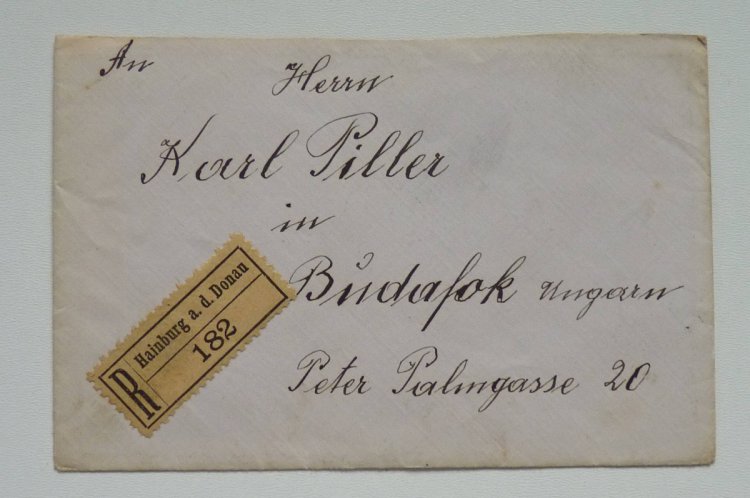 An
Herrn
Karl Piller
in
Budafok Ungarn
Peter Palmgasse 20
R
Hainburg a. d. Donau
182